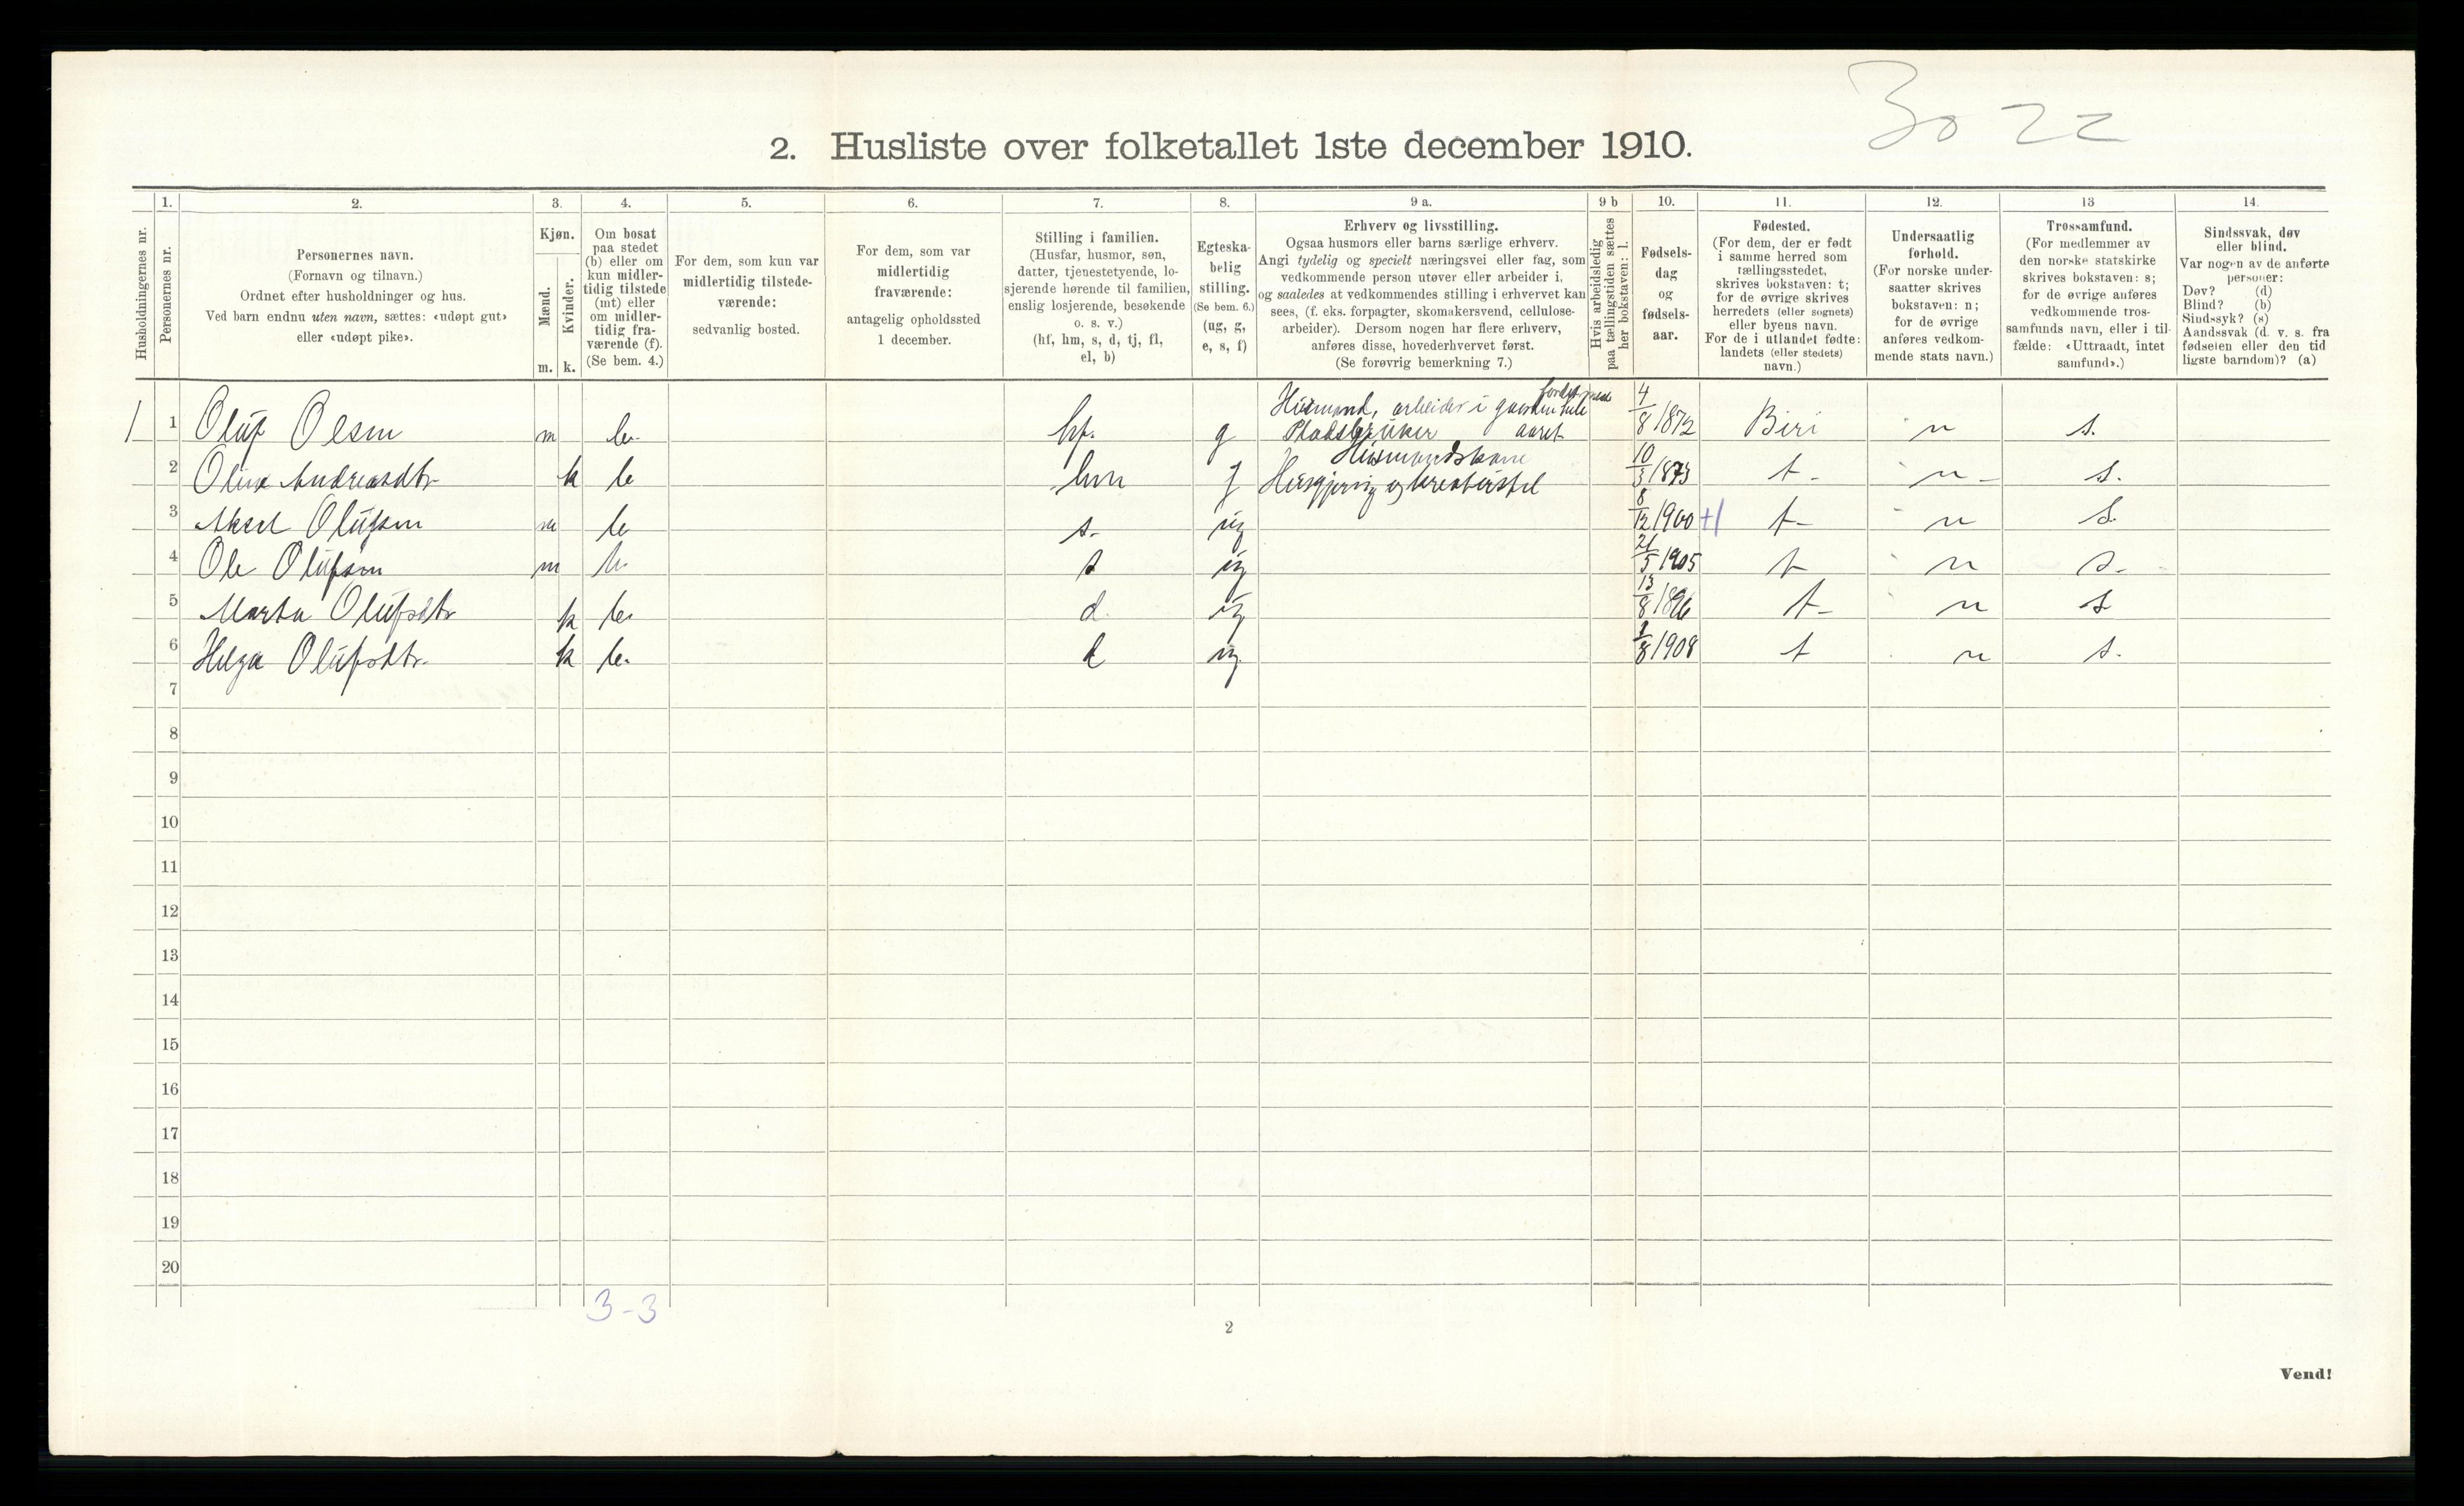 Bo 22
2. Husliste over folketallet 1ste december 1910.
Husholdningernes nr.
1.
Personernes nr.
2.
Personernes navn.
(Fornavn og tilnavn.)
Ordnet efter husholdninger og hus.
Ved barn endnu uten navn, sættes: «udøpt gut»
eller «udøpt pike».
3.
Kjøn.
Mænd.
Kvinder.
m. k.
4.
Om bosat
paa stedet
(b) eller om
kun midler-
tidig tilstede
(mt) eller
om midler-
tidig fra-
værende (f).
(Se bem. 4.)
5.
For dem, som kun var
midlertidig tilstede-
værende:
sedvanlig bosted.
6.
For dem, som var
midlertidig
fraværende:
antagelig opholdssted
1 december.
7.
Stilling i familien.
(Husfar, husmor, søn,
datter, tjenestetyende, lo-
sjerende hørende til familien,
enslig losjerende, besøkende
o. s. v.)
(hf, hm, s, d, tj, fl,
el, b)
8.
Egteska-
belig
stilling.
(Se bem. 6.)
(ug, g,
e, s, f)
9 a.
Erhverv og livsstilling.
Ogsaa husmors eller barns særlige erhverv.
Angi tydelig og specielt næringsvei eller fag, som
vedkommende person utøver eller arbeider i,
og saaledes at vedkommendes stilling i erhvervet kan
sees, (f. eks. forpagter, skomakersvend, cellulose-
arbeider). Dersom nogen har flere erhverv,
anføres disse, hovederhvervet først.
(Se forøvrig bemerkning 7.)
9 b
Hvis arbeidsledig
paa tællingstiden sættes
her bokstaven: l.
10.
Fødsels-
dag
og
fødsels-
aar.
11.
Fødested.
(For dem, der er født
i samme herred som
tællingsstedet,
skrives bokstaven: t;
for de øvrige skrives
herredets (eller sognets)
eller byens navn.
For de i utlandet fødte:
landets (eller stedets)
navn.)
12.
Undersaatlig
forhold.
(For norske under-
saatter skrives
bokstaven: n;
for de øvrige
anføres vedkom-
mende stats navn.)
13
Trossamfund.
(For medlemmer av
den norske statskirke
skrives bokstaven: s;
for de øvrige anføres
vedkommende tros-
samfunds navn, eller i til-
fælde: «Uttraadt, intet
samfund».)
14.
Sindssvak, døv
eller blind.
Var nogen av de anførte
personer:
Døv? (d)
Blind? (b)
Sindssyk? (s)
Aandssvak (d. v. s. fra
fødselen eller den tid
ligste barndom)? (a)
1 1 Oluf Olsen m b. hf. g Husmand, arbeider i gaarden hele aaret Pladsbruker 4/8 1872 Biri n s.
2 Oline Andreasdtr k b hm g Husmandskone Husgjerning og kreaturstel 10/3 1873 t n s.
3 Aksel Olufsen m b s. ug 8/12 1900 +1 t n s.
4 Ole Olufsen m b. s ug 21/5 1905 t n s.
5 Marta Olufsdtr k b. d. ug 13/8 1896 t n s
6 Helga Olufsdtr. k b. d ug 1/8 1908 t n s.
7
8
9
10
11
12
13
14
15
16
17
18
19
20
3-3
2
Vend!